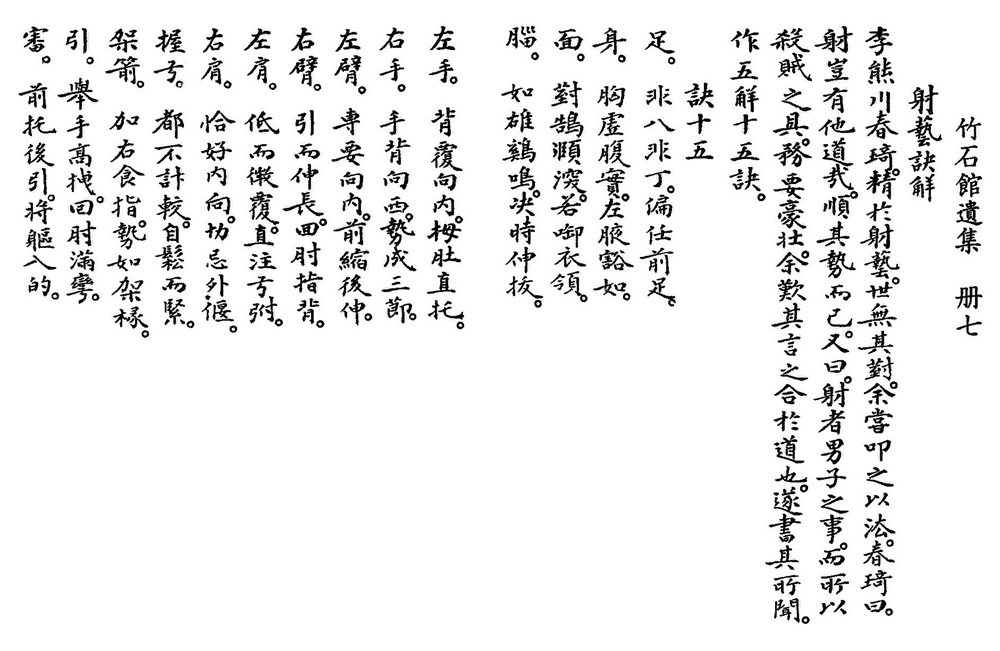 竹石館遺集 册七
射藝訣解
李熊川春琦。精於射藝。世無其對。余嘗叩之以法。春琦曰。
射豈有他道哉。順其勢而已。又曰。射者男子之事。而所以
殺賊之具。務要豪壯。余歎其言之合於道也。遂書其所聞。
作五解十五訣。
訣十五
足。 非八非丁。偏任前足。
身。 胸虛腹實。左腋豁如。
面。 對鵠頻深。若啣衣領。
腦。 如雄鷄鳴。决時伸拔。
左手。 背覆向内。拇肚直托。
右手。 手背向西。勢成三節。
左臂。 專要向内。前縮後伸。
右臂。 引而伸長。回肘指背。
左肩。 低而微覆。直注弓弣。
右肩。 恰好内向。切忌外偃。
握弓。 都不計較。自鬆而緊。
架箭。 加右食指。勢如架椽。
引。 擧手高拽。回肘滿彎。
審。 前托後引。將軀入的。